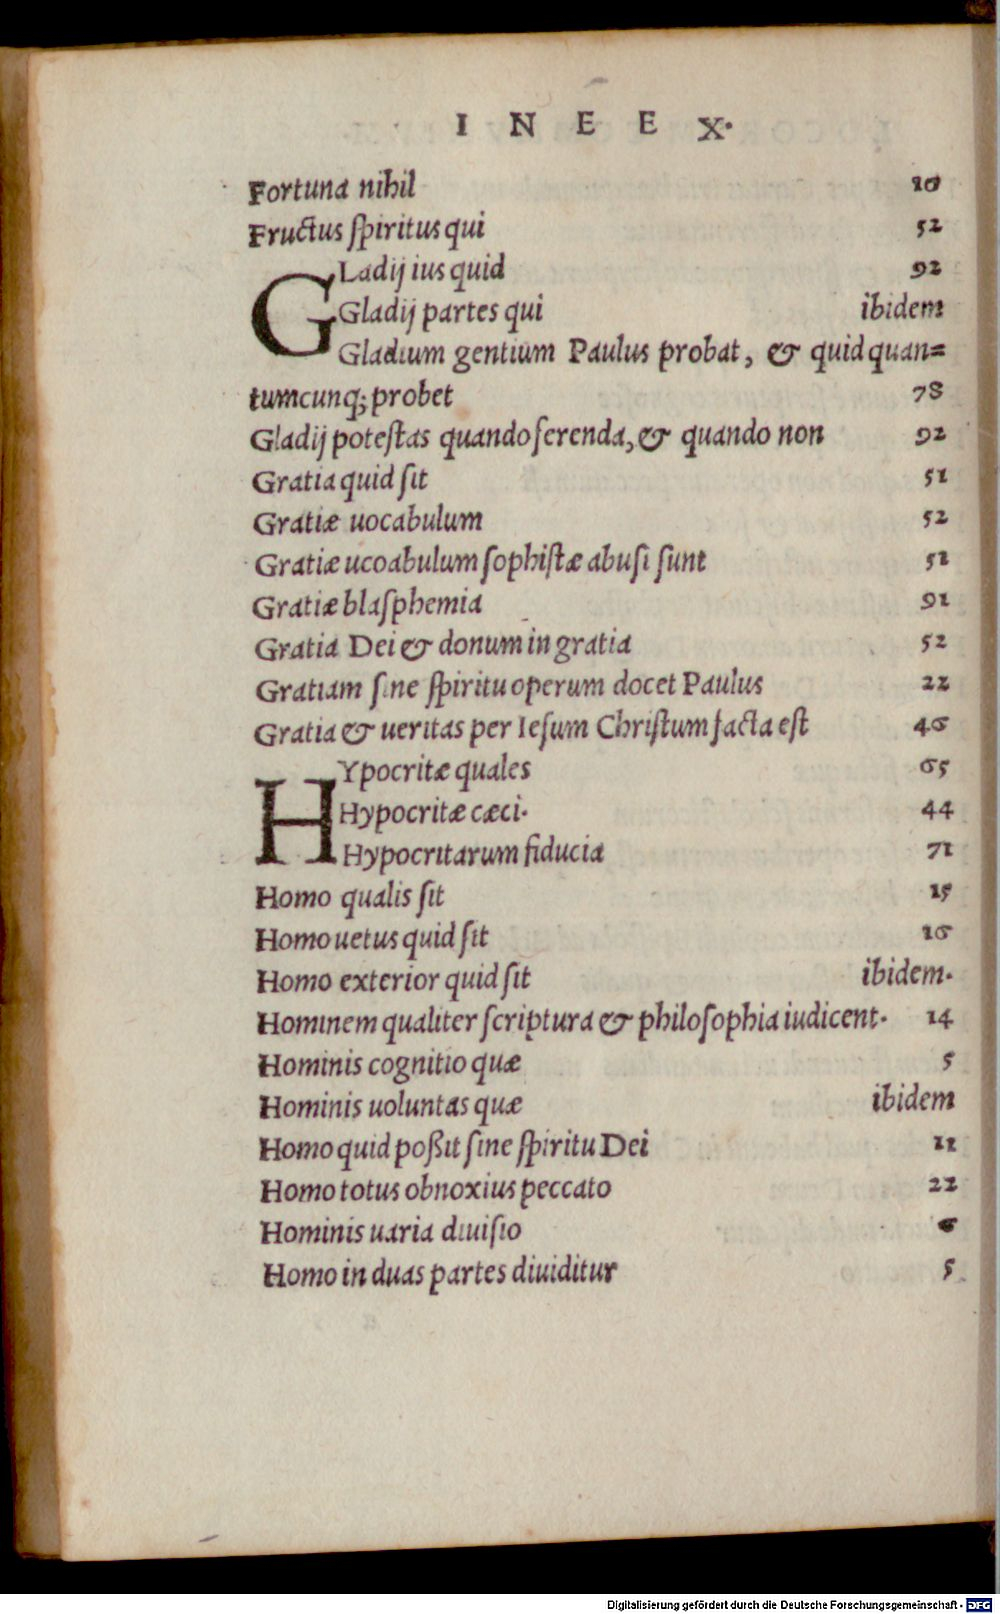 INEEX.
Fortuna nihil 10
Fructus ſpiritus qui 52
GLadij ius quid 92
Gladij partes qui ibidem
Gladium gentium Paulus probat, & quid quan=
tumcunq; probet 78
Gladij poteſtas quando ferenda, & quando non 92
Gratia quid ſit 51
Gratiæ uocabulum 52
Gratiæ ucoabulum ſophiſtæ abuſi ſunt 51
Gratiæ blaſphemia 91
Gratia Dei & donum in gratia 52
Gratiam ſine ſpiritu operum docet Paulus 22
Gratia & ueritas per Ieſum Chriſtum facta eſt 46
HYpocritæ quales 65
Hypocritæ cæci. 44
Hypocritarum fiducia 71
Homo qualis ſit 15
Homo uetus quid ſit 16
Homo exterior quid ſit ibidem.
Hominem qualiter ſcriptura & philoſophia iudicent. 14
Hominis cognitio quæ 5
Hominis uoluntas quæ ibidem
Homo quid poßit ſine ſpiritu Dei 11
Homo totus obnoxius peccato 22
Hominis uaria diuiſio 6
Homo in duas partes diuiditur 5
Digitalisierung gefördert durch die Deutsche Forschungsgemeinschaft - DFG